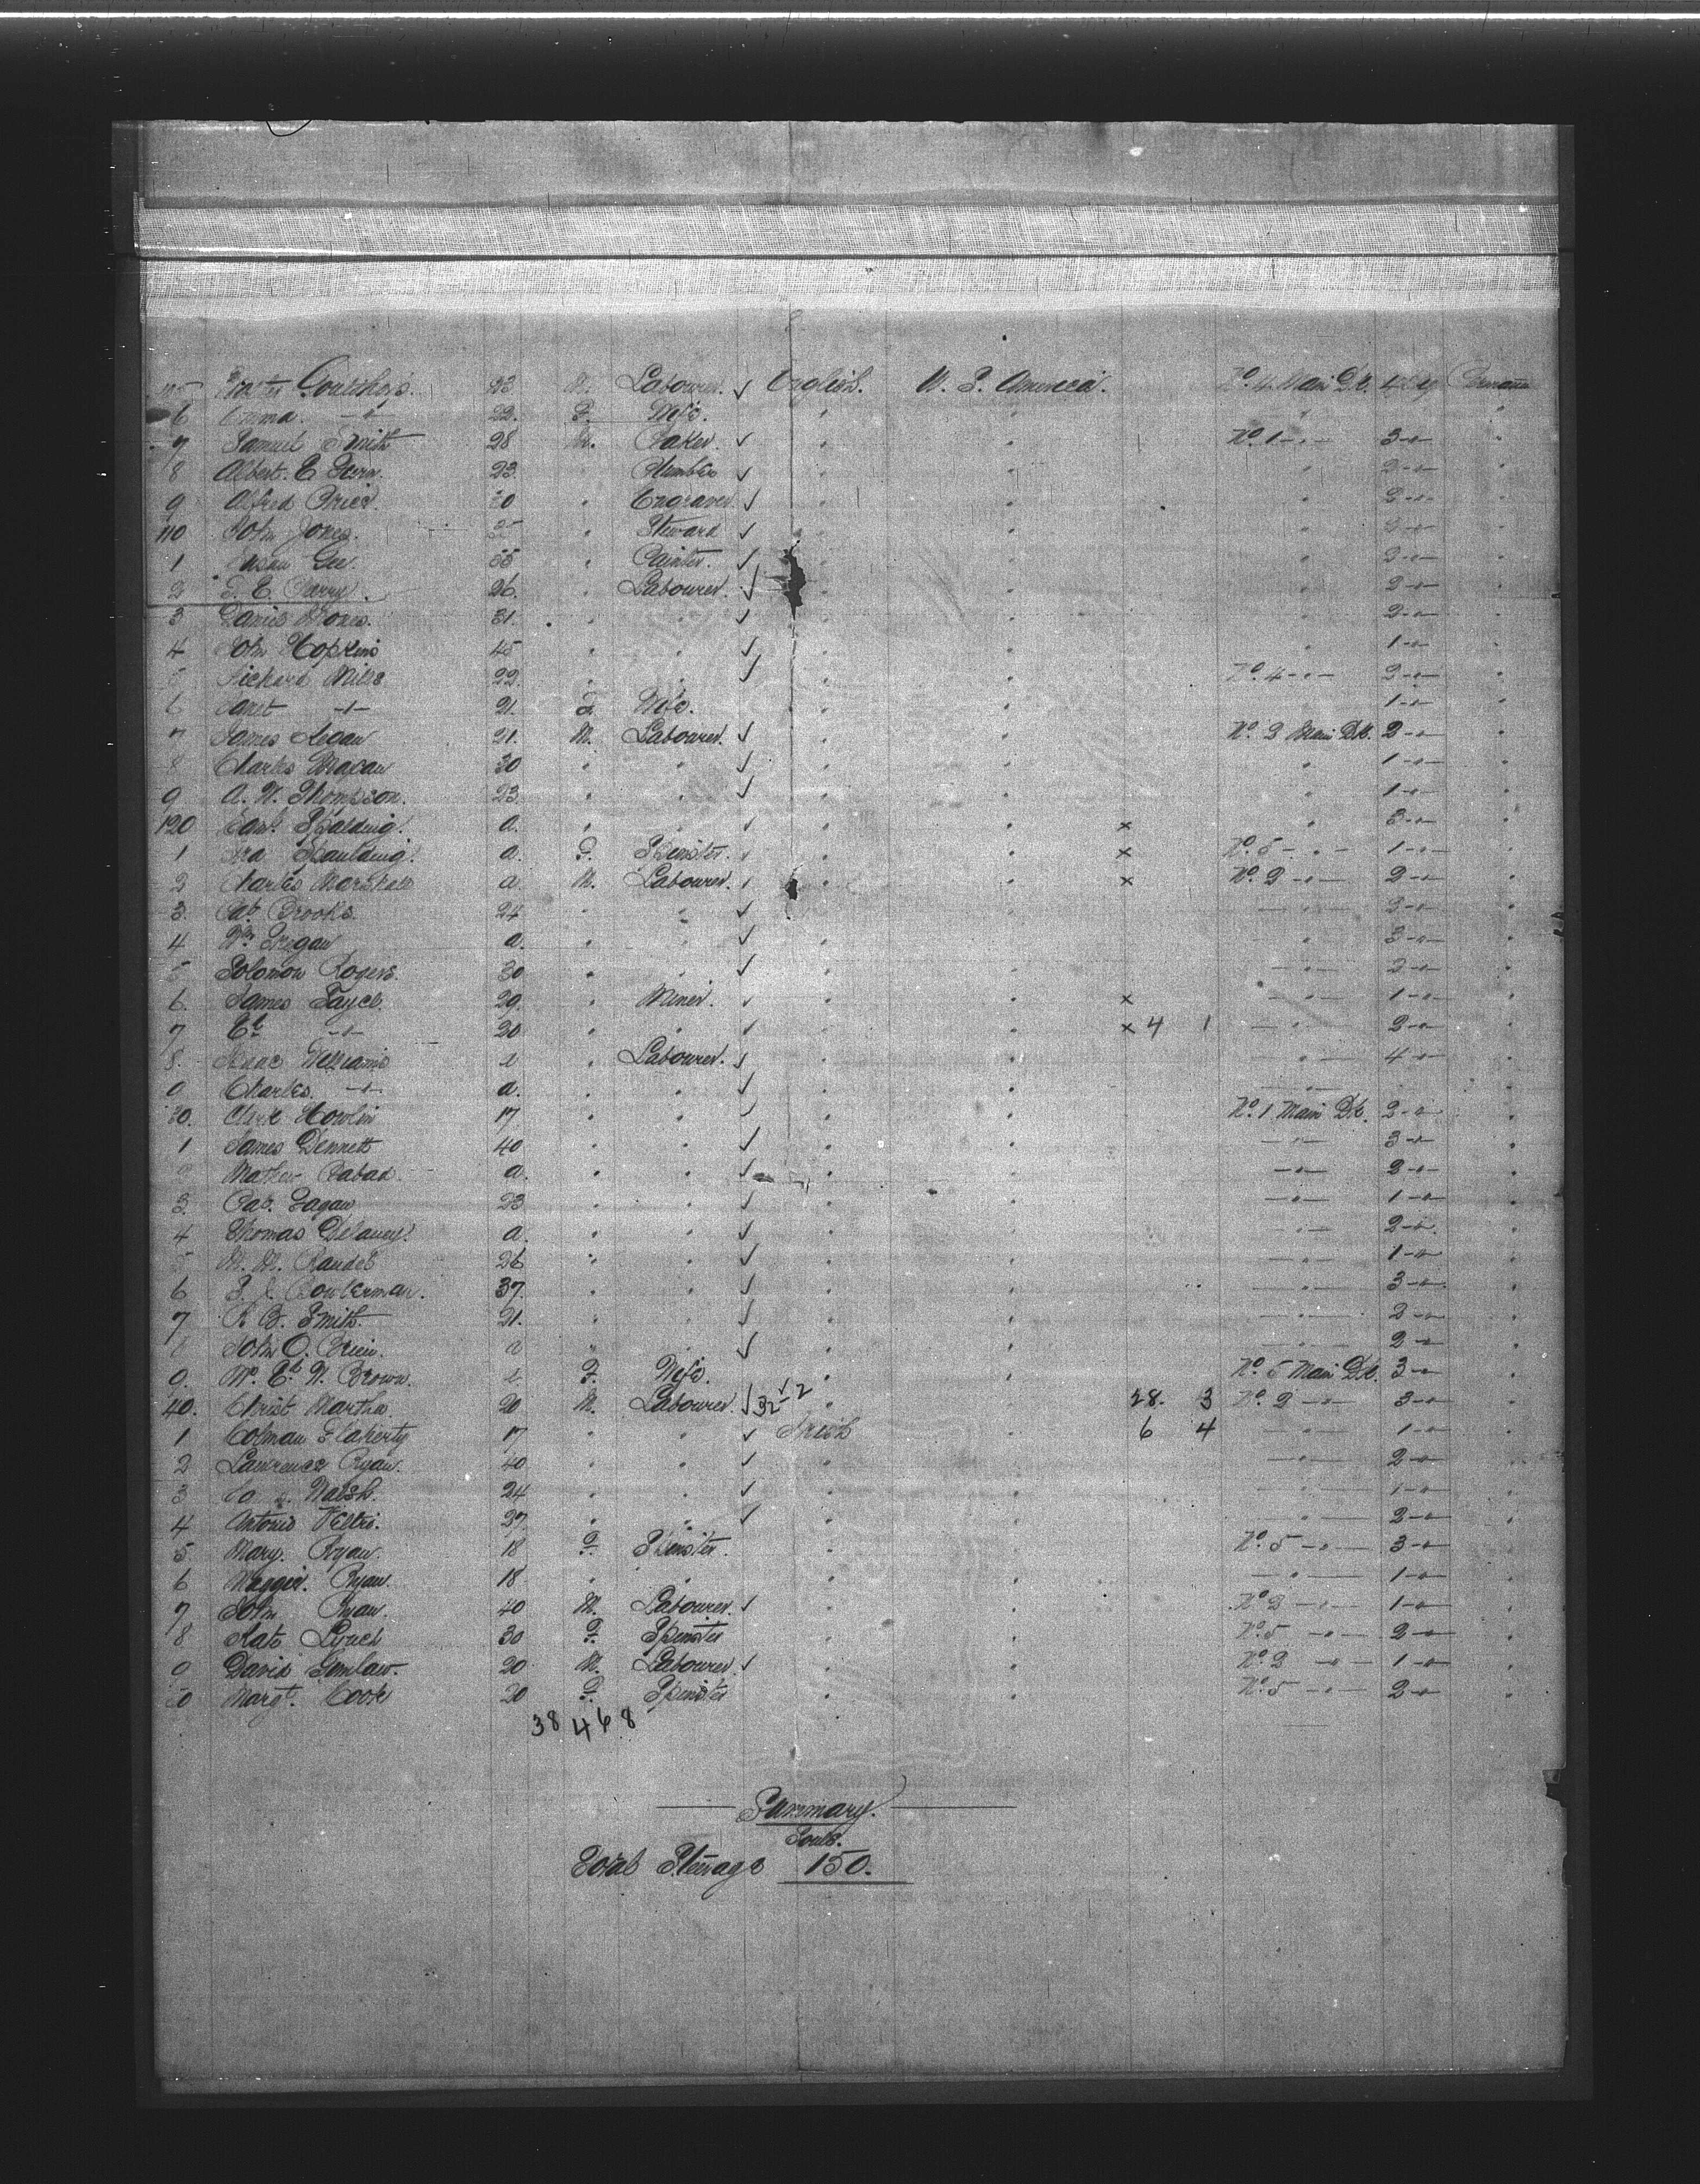 Labourer. ✓ English. U. S. America. No. 4 Main Dk. 4
6 Emma —"— 22. F. Wife. "
7 Samuel Smith 28 M. Baker ✓ " " No. 1 —"— 3 —"— "
8 Albert. E. 23 Plumber ✓ " " " 2 —"— "
9 Alfred Price. 30 " Engraver ✓ " " " 2 —"— "
110 John Jones. " Steward ✓ " " 2 —"— "
1 Gee. 35 " Painter. ✓ " " " 2 —"— "
2 T. E. Parry. 26. " Labourer. ✓ " " " 2 —"— "
3 David Jones. 31. " " ✓ " " " 2 —"— "
4 John Hopkins 45 " " ✓ " " " 1 —"— "
5 Richard Mills 22. " " ✓ " " No. 4 —"— 2 —"— "
6 Janet —"— 21. F. Wife. " " 1 —"— "
7 James Regan 21. M. Labourer. ✓ " " No. 2 Main Dk. 2 —"— "
8 Charles 30 " " ✓ " " " 1 —"— "
9 A. W. Thompson. 23. " " ✓ " " " 1 —"— "
120 Spalding. a. " " ✓ " " x " 3 —"— "
1 Spaulding. a. F. Spinster. ✓ " " x No. 5 —"— 1 —"— "
2 Charles Marshall a. M. Labourer. ✓ " " x No. 2 —"— 2 —"— "
3. Pat. Brooks. 24 " " ✓ " —"— 2 —"— "
4 Wm. a. " " ✓ " " —"— 3 —"— "
5 Solomon Rogers. 30 " " ✓ " " —"— 2 —"— "
6. James 29. " Miner. ✓ " " x —"— 1 —"— "
7 —"— 20 " " ✓ " " x 4 1 —"— 2 —"— "
8. Isaac Williams " Labourer. ✓ " " —"— 4 —"— "
9 Charles. —"— a. " " ✓ " " —"— "
30. Howlin 17. " " ✓ " " No. 1 Main Dk. 2 —"— "
1 James Dennett 40 " " ✓ " " —"— 3 —"— "
2 a. " " ✓ " " —"— 2 —"— "
3. Pat. Fagan 23 " " ✓ " " —"— 1 —"— "
4 Thomas Delaney. a. " " ✓ " " —"— 2 —"— "
5 26 " " ✓ " " —"— 1 —"— "
6 Bowlerman. 37. " " ✓ " " —"— 3 —"— "
7 R. B. Smith. 21. " " ✓ " " —"— 2 —"— "
8 John O. Brien. a " " ✓ " " —"— 2 —"— "
9. Brown. F. Wife. " No. 5 Main Dk. 3 —"— "
40. Christ Martha. 20 M. Labourer. ✓ 32 2 " 28. 3 No. 2 —"— 3 —"— "
1 Colman Flaherty 17 " " ✓ Irish " 6 4 —"— 1 —"— "
2 Lawrence Ryan. 40 " " ✓ " —"— 2 —"— "
3 Walsh. 24 " " ✓ " " —"— 1 —"— "
4 Antonio Veltri. 27. " " ✓ " " —"— 2 —"— "
5 Mary. Ryan. 18 F. Spinster. " " No. 5 —"— 3 —"— "
6 Maggie. Ryan. 18. " " " " —"— 1 —"— "
7 John Ryan. 40 M. Labourer. ✓ " " No. 2 —"— 1 —"— "
8 Kate Lynch 30 F. Spinster " " No. 5 —"— 2 —"— "
9 David 20 M. Labourer. ✓ " " No. 2 —"— 1 —"— "
50 Margt. Cook 20 F. Spinster " " No. 5 —"— 2 —"— "
38 4 6 8
Summary.
Souls.
Total Steerage 150.